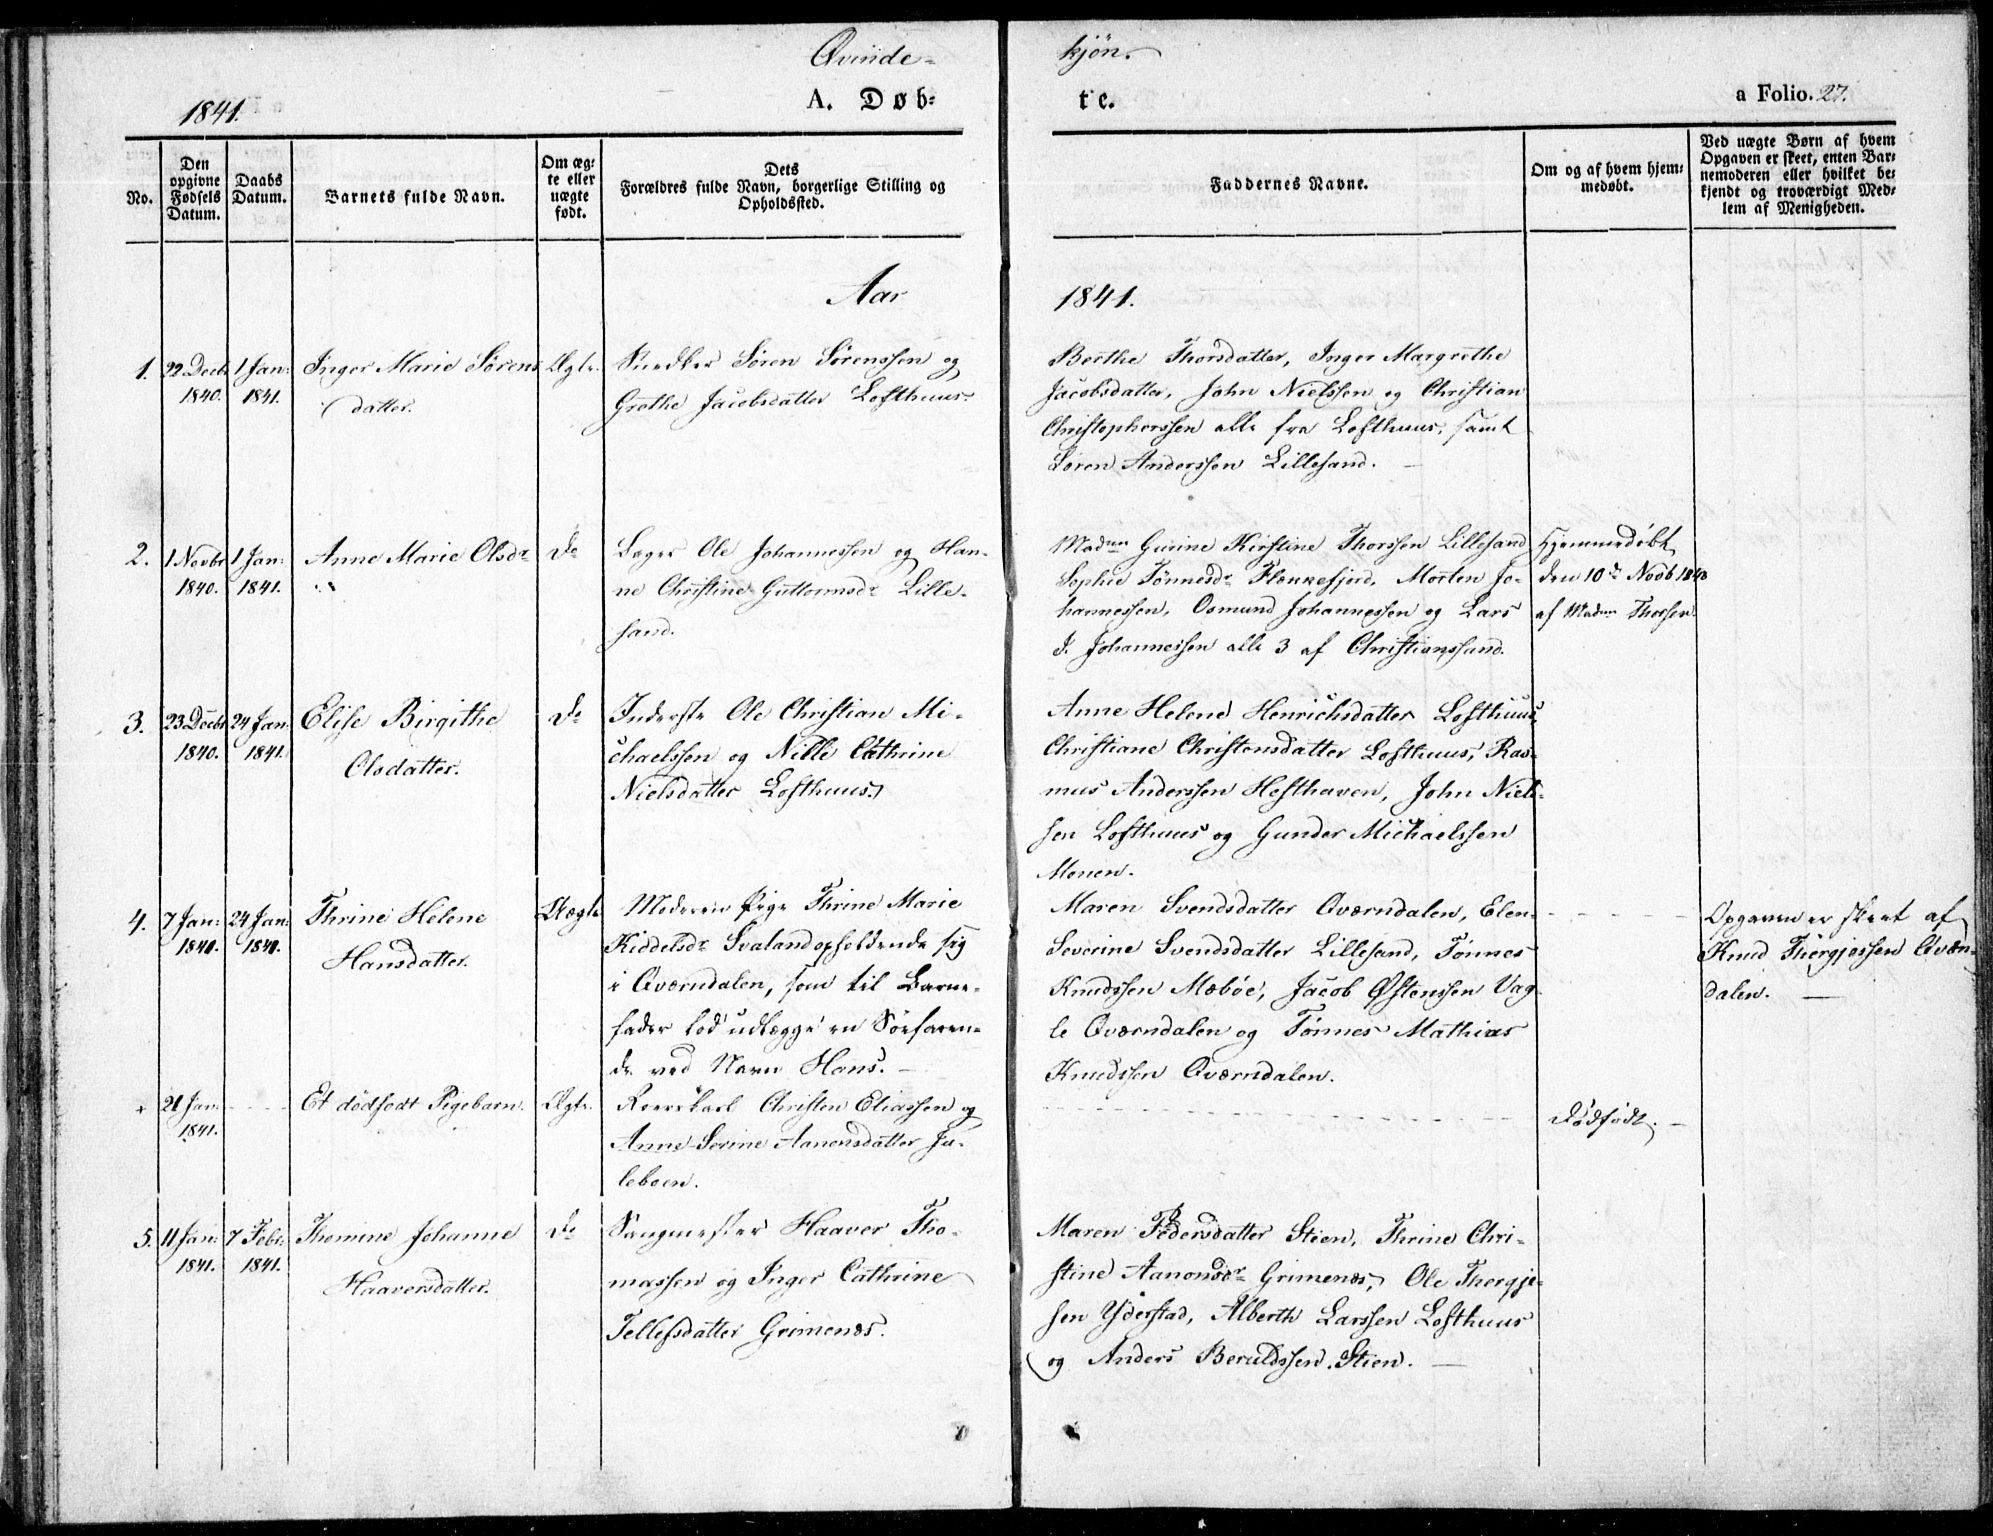 Qvinde-
kjøn.
1841.
A. Døb-
te.
a Folio. 27.
No.
Den opgivne Fødsels Datum.
Daabs Datum.
Barnets fulde Navn.
Om ægte eller uægte født.
Dets Forældres fulde Navn, borgerlige Stilling og Opholdssted.
Faddernes Navne.
Om og af hvem hjemmedøbt.
Ved uægte Børn af hvem
Opgaven er skeet, enten Bar-
nemoderen eller hvilket be-
kjendt og troværdigt Med-
lem af Menigheden.
Aar
1841.
1.
22 Decbr
1840.
1 Jan:
1841.
Inger Marie Sørens
datter.
Ægte.
Snedker Søren Sørenssen og
Grethe Jacobsdatter Lofthuus.
Berthe Thorsdatter, Inger Margrethe
Jacobsdatter, John Nielssen og Christian
Christophersen alle fra Lofthuus, samt
Søren Anderssen Lillesand.
2.
1 Novbr
1840.
1 Jan:
1841.
Anne Marie Olsdr
Do
Ole Johannessen og Han-
ne Christine Guttormsdr Lille-
sand.
Madm Gurine Kirstine Thorssen Lillesand
Sophie Tønnesdr Morten Jo-
hannessen, Osmund Johannessen og Lars
J. Johannessen alle 3 af Christianssand.
Hjemmedøbt
den 10de Novb 1840
af Madm Thorssen.
3.
23 Decbr
1840.
24 Jan:
1841.
Elise Birgithe
Olsdatter.
Do
Inderste Ole Christian Mi-
chaelssen og Nille Cathrine
Nielsdatter Lofthuus.
Anne Helene Henrichsdatter Lofthuus,
Christiane Christensdatter Lofthuus, Ras-
mus Anderssen Hesthaven, John Niels-
sen Lofthuus og Gunder Michaelssen
Monen.
4.
7 Jan:
1841.
24 Jan:
1841.
Thrine Helene
Hansdatter.
Uægte
Moderen Pige Thrine Marie
Kiddelsdr Svaland opholdende sig
i Qværndalen, som til Barne-
fader lod udlægge en Søefaren-
de ved Navn Hans.
Maren Svendsdatter Qværndalen, Elen
Severine Svendsdatter Lillesand, Tønnes
Knudssen Mæbøe, Jacob Østenssen Vag-
le Qværndalen og Tønnes Mathias
Knudssen Qværndalen.
Opgaven er skeet af
Knud Thergjessen Qværn-
dalen.
+
21 Jan:
1841.
Et dødfødt Pigebarn.
Ægte.
Christen Eliassen og
Anne Serine Aanonsdatter Ju-
leboen.
Dødfødt.
5.
11 Jan:
1841.
7 Febr:
1841.
Thomine Johanne
Haaversdatter.
Do
Haaver Tho-
massen og Inger Cathrine
Tellefsdatter Grimenæs.
Maren Pedersdatter Steen, Thrine Chri-
stine Aanonsdr Grimenæs, Ole Thergje-
sen Yderstad, Alberth Larssen Lofthuus
og Anders Beruldssen Steen.